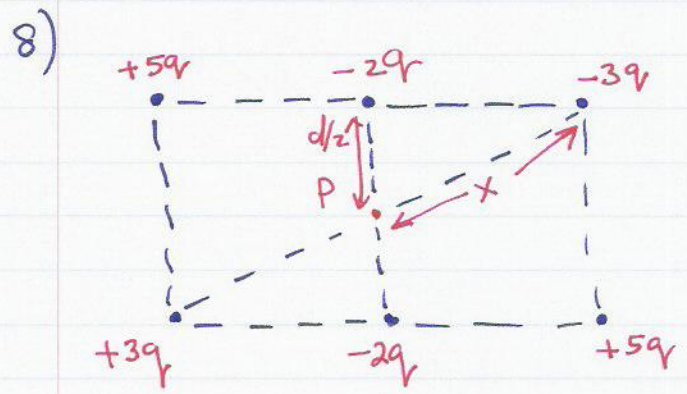 8)
+5q -2q -3q
d/2
P x
+3q -2q +5q